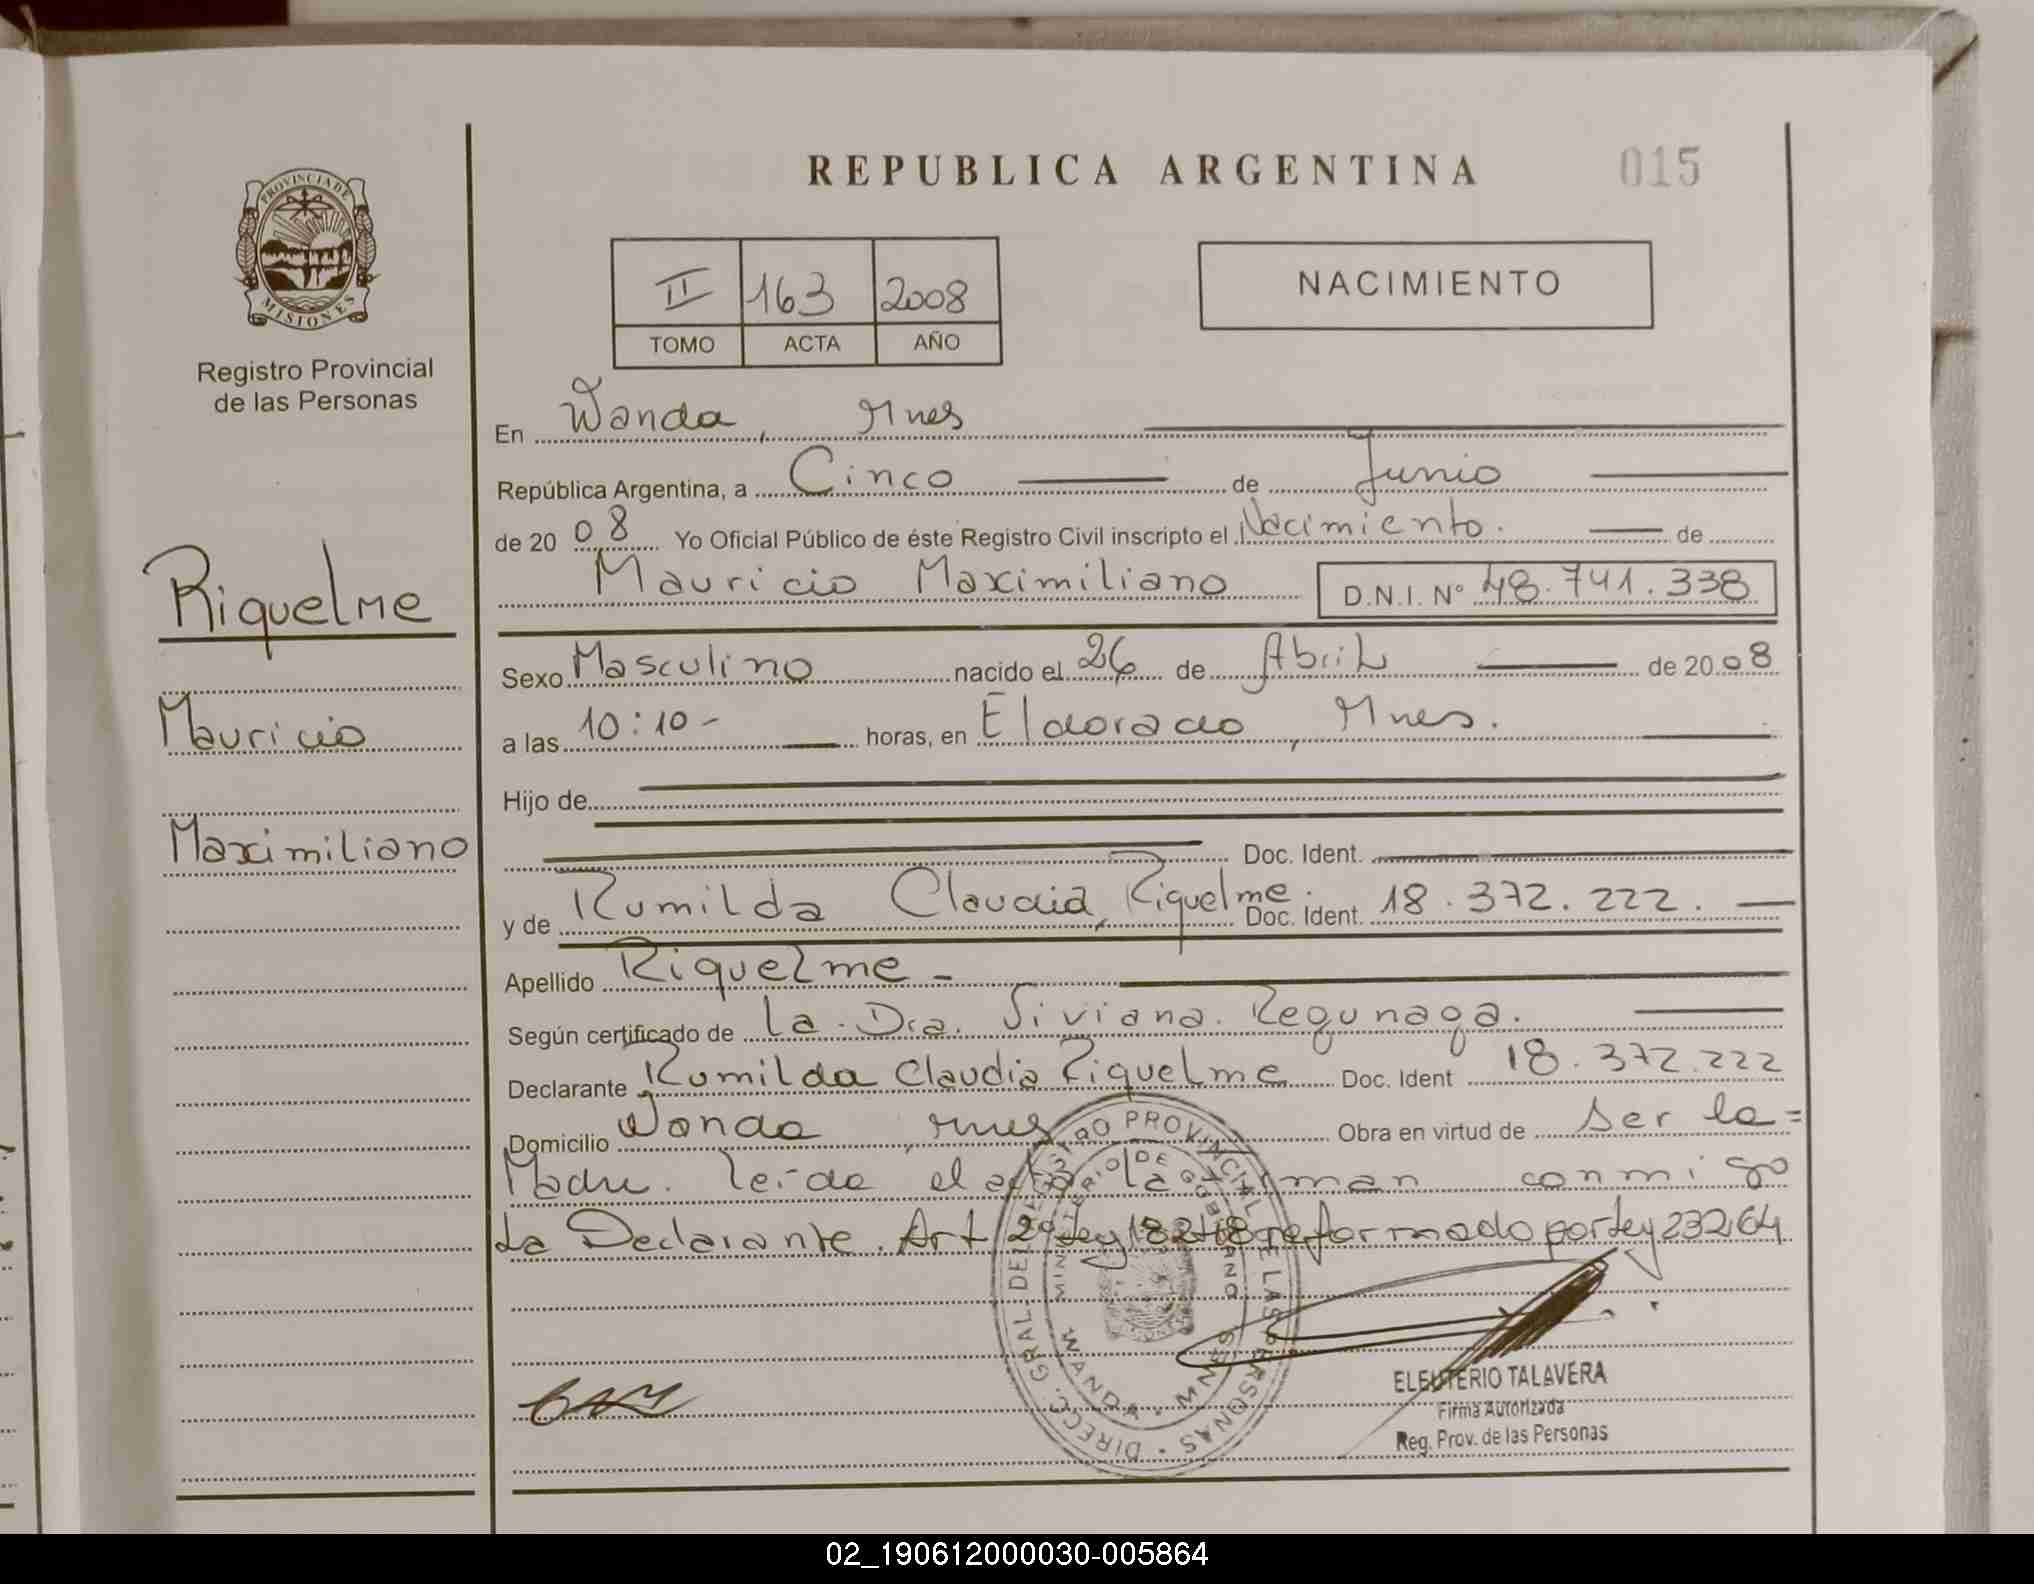 REPUBLICA ARGENTINA
015
PROVINCIA DE
MISIONES
Registro Provincial
de las Personas
II 163 2008
TOMO ACTA AÑO
NACIMIENTO
Riquelme
Mauricio
Maximiliano
En Wanda, Mnes
República Argentina, a Cinco de Junio
de 20 08 Yo Oficial Público de éste Registro Civil inscripto el Nacimiento. de
Mauricio Maximiliano D.N.I. Nº 48.741.338
Sexo Masculino nacido el 26 de Abril de 20 08
a las 10:10- horas, en Eldorado, Mnes.
Hijo de
Doc. Ident.
y de Rumilda Claudia, Riquelme. Doc. Ident. 18.372.222.
Apellido Riquelme -
Según certificado de la Dra. Viviana Regunaga.
Declarante Rumilda Claudia Riquelme Doc. Ident 18.372.222
Domicilio Wanda, mnes Obra en virtud de Ser la=
Madre. leída el acta la firman conmigo
La Declarante. Art 29 Ley 18248 reformado por Ley 23264
DIRECC. GRAL. DEL REGISTRO PROVINCIAL DE LAS PERSONAS
MINISTERIO DE GOBIERNO
WANDA - MNES
ELEUTERIO TALAVERA
Firma Autorizada
Reg. Prov. de las Personas
02_190612000030-005864